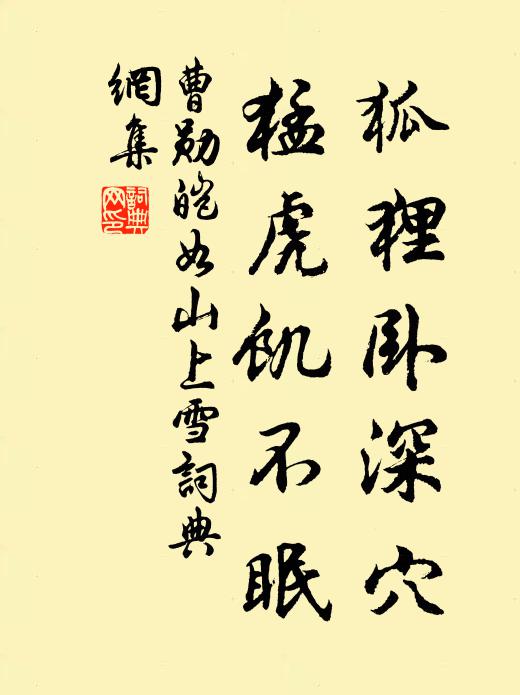 狐狸卧深穴
猛虎飢不眠
曹勛皑如山上雪詞典
網集
詞典
网印